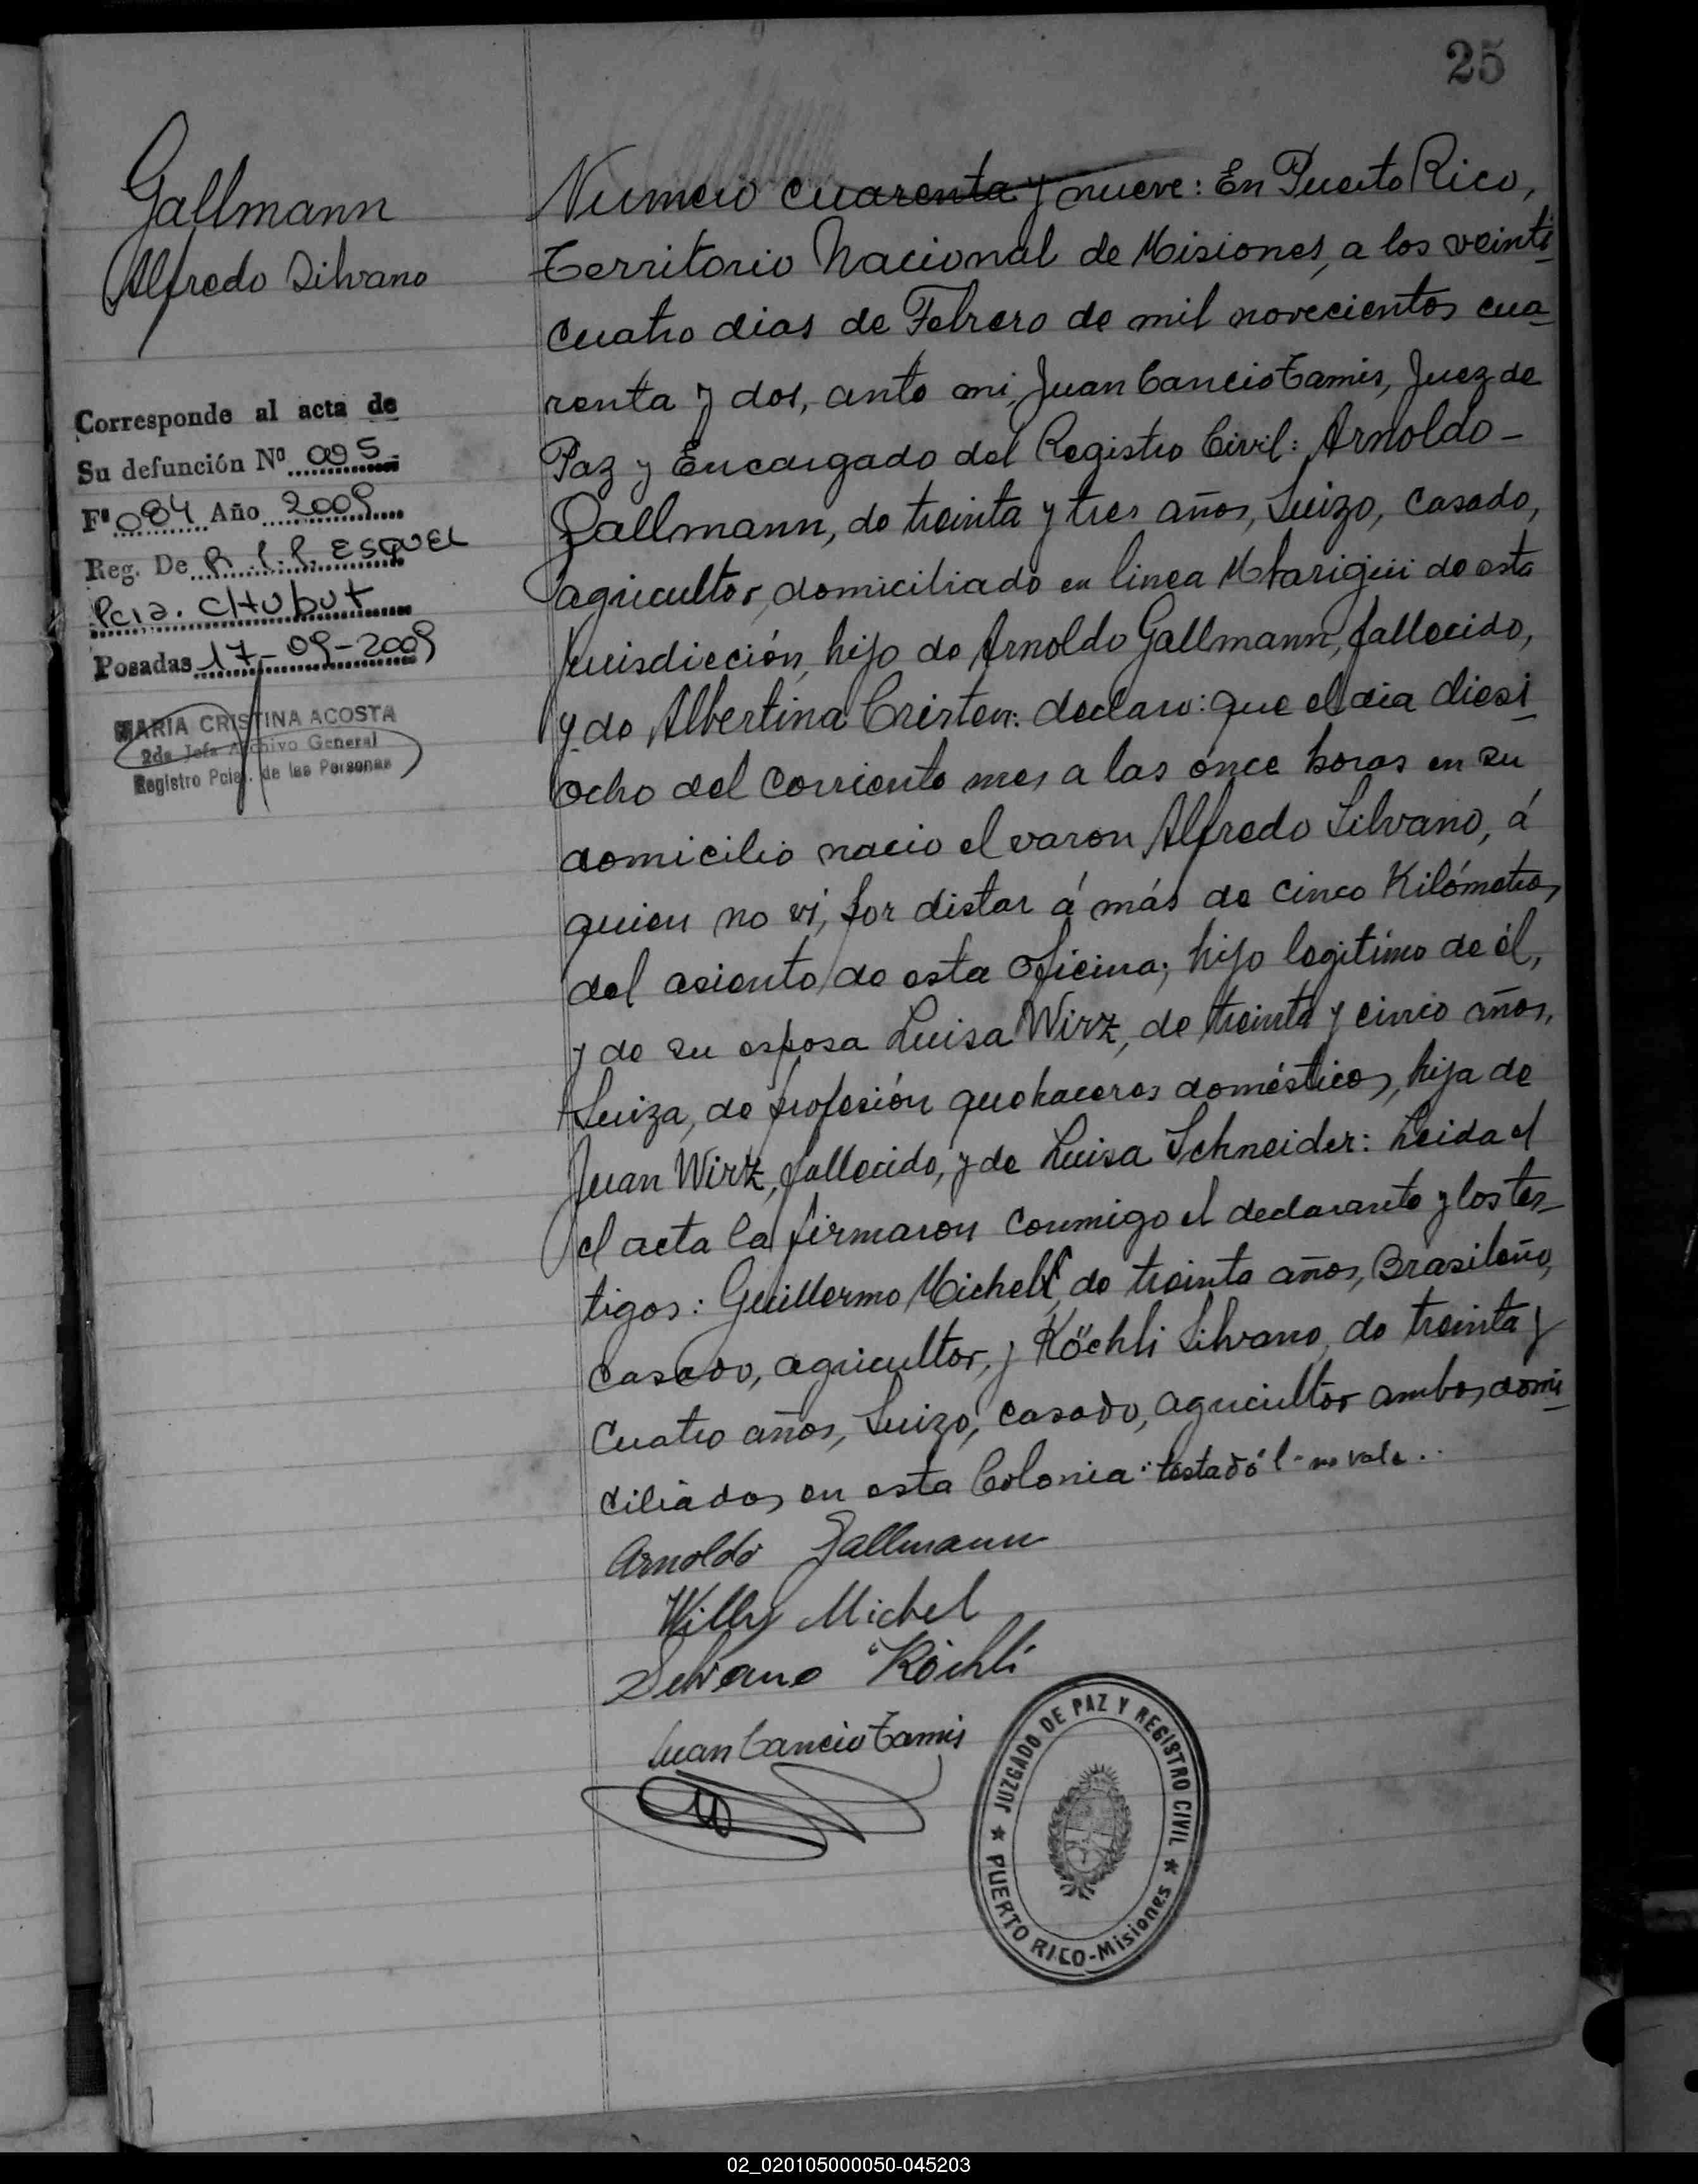 25
Gallmann
Alfredo Silvano
Corresponde al acta de
Su defunción Nº 095
Fº 084 Año 2009
Reg. De R.I.P. ESQUEL
Pcia. CHubut
Posadas 17-09-2009
MARIA CRISTINA ACOSTA
2da Jefa Archivo General
Registro Pcial. de las Personas
Numero cuarenta y nueve: En Puerto Rico,
Territorio Nacional de Misiones, a los veinti
cuatro dias de Febrero de mil novecientos cua
renta y dos, ante mi, Juan Cancio Tamis, Juez de
Paz y Encargado del Registro Civil: Arnoldo-
Gallmann, de treinta y tres años, Suizo, casado,
agricultor, domiciliado en linea Mbarigüi de esta
Jurisdicción, hijo de Arnoldo Gallmann, fallecido,
y de Albertina Cristen: declaro: que el dia diesi
ocho del corriente mes a las once horas en su
domicilio nacio el varon Alfredo Silvano, á
quien no vi, por distar á más de cinco Kilómetros
del asiento de esta oficina; hijo legitimo de él,
y de su esposa Luisa Wirz, de treinta y cinco años,
Suiza, de profesión quehaceres domésticos, hija de
Juan Wirz, fallecido, y de Luisa Schneider: Leida el
el acta la firmaron conmigo el declarante y los tes-
tigos: Guillermo Michell, de treinta años, Brasileño,
casado, agricultor, y Köchli Silvano, de treinta y
cuatro años, Suizo, casado, agricultor ambos domi
ciliados en esta Colonia: testado "l" no vale.
Arnoldo Gallmann
Willy Michel
Silvano Köchli
Juan Cancio Tamis
JUZGADO DE PAZ Y REGISTRO CIVIL
PUERTO RICO-Misiones
02_020105000050-045203